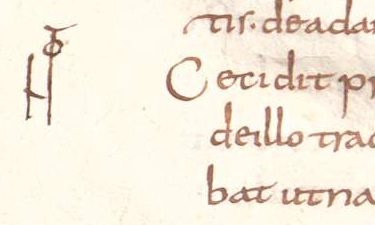 tis. deada
Cecidit p
deillo tra
bat utna